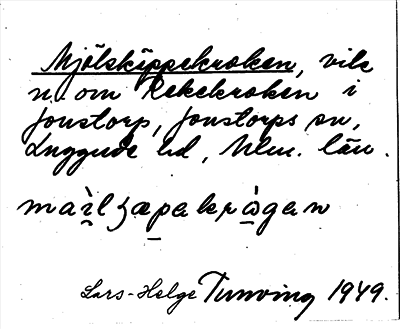 Mjölskäppekroken, vik
n. om Rekekroken i
Jonstorp, Jonstorps sn,
Luggude hd, Mlm. län.
maìlʒæpakrɑ̀gan
Lars-Helge Tunving 1949.